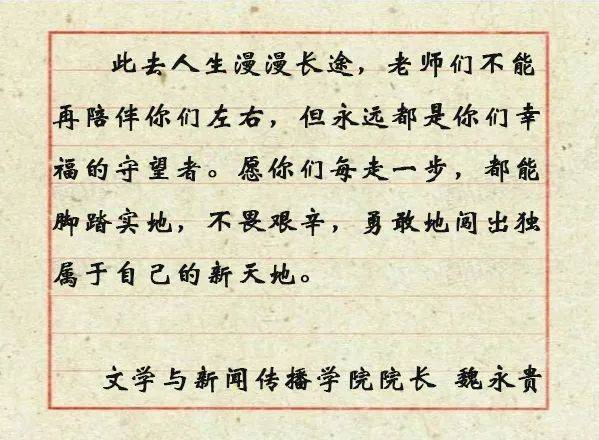 此去人生漫漫长途，老师们不能
再陪伴你们左右，但永远都是你们幸
福的守望者。愿你们每走一步，都能
脚踏实地，不畏艰辛，勇敢地闯出独
属于自己的新天地。
文学与新闻传播学院院长 魏永贵